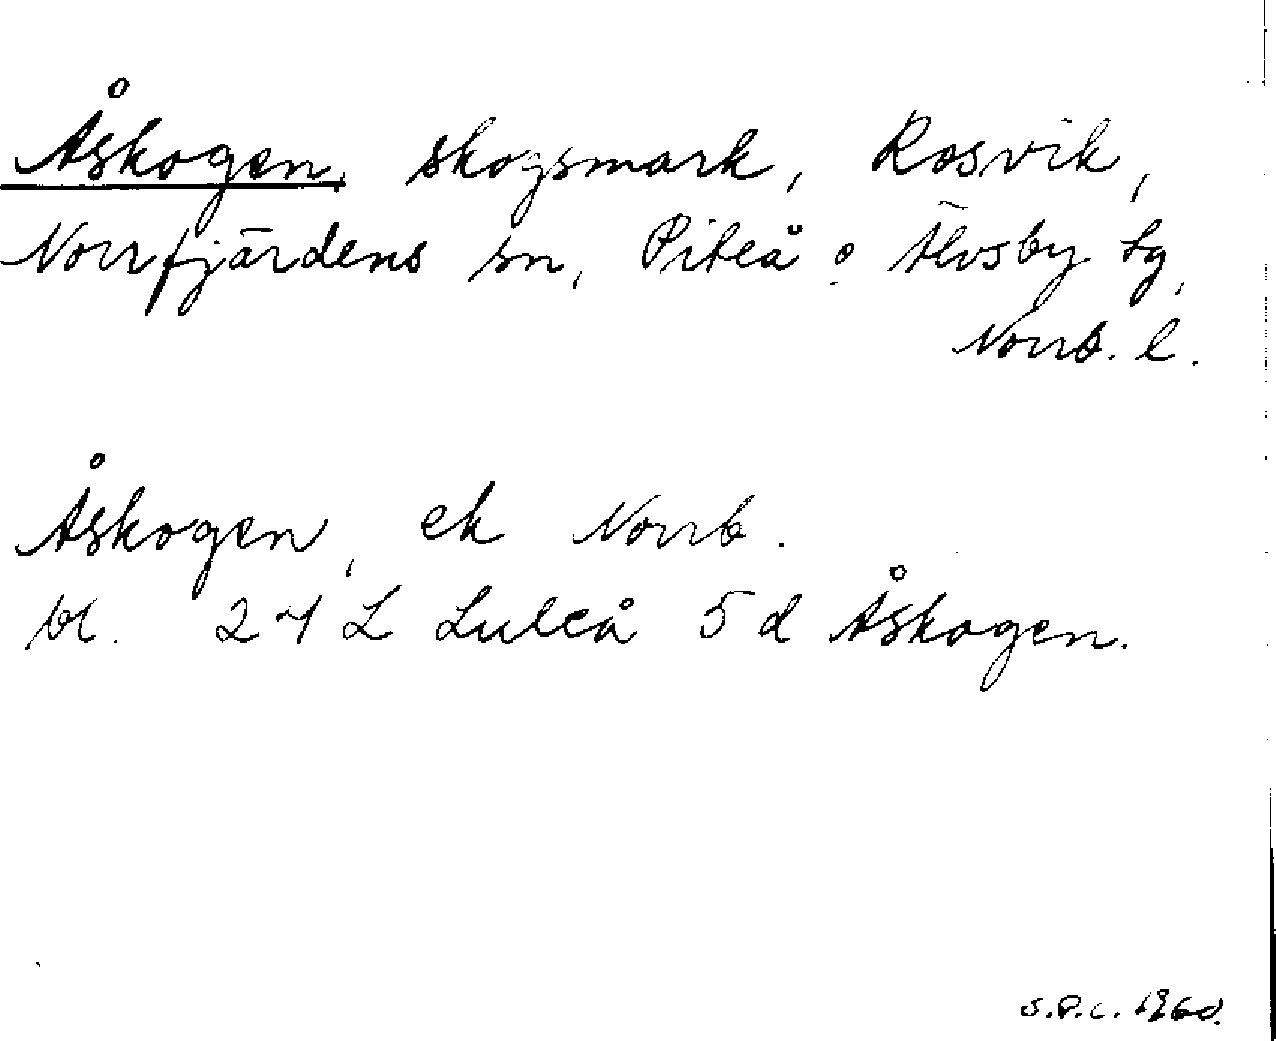 Åskogen, skogsmark, Rosvik,
Norrfjärdens sn, Piteå o Älvsby tg,
Norrb. l.
Åskogen, ek Norrb.
bl. 24 L Luleå 5 d Åskogen.
S.P.C. 1960.